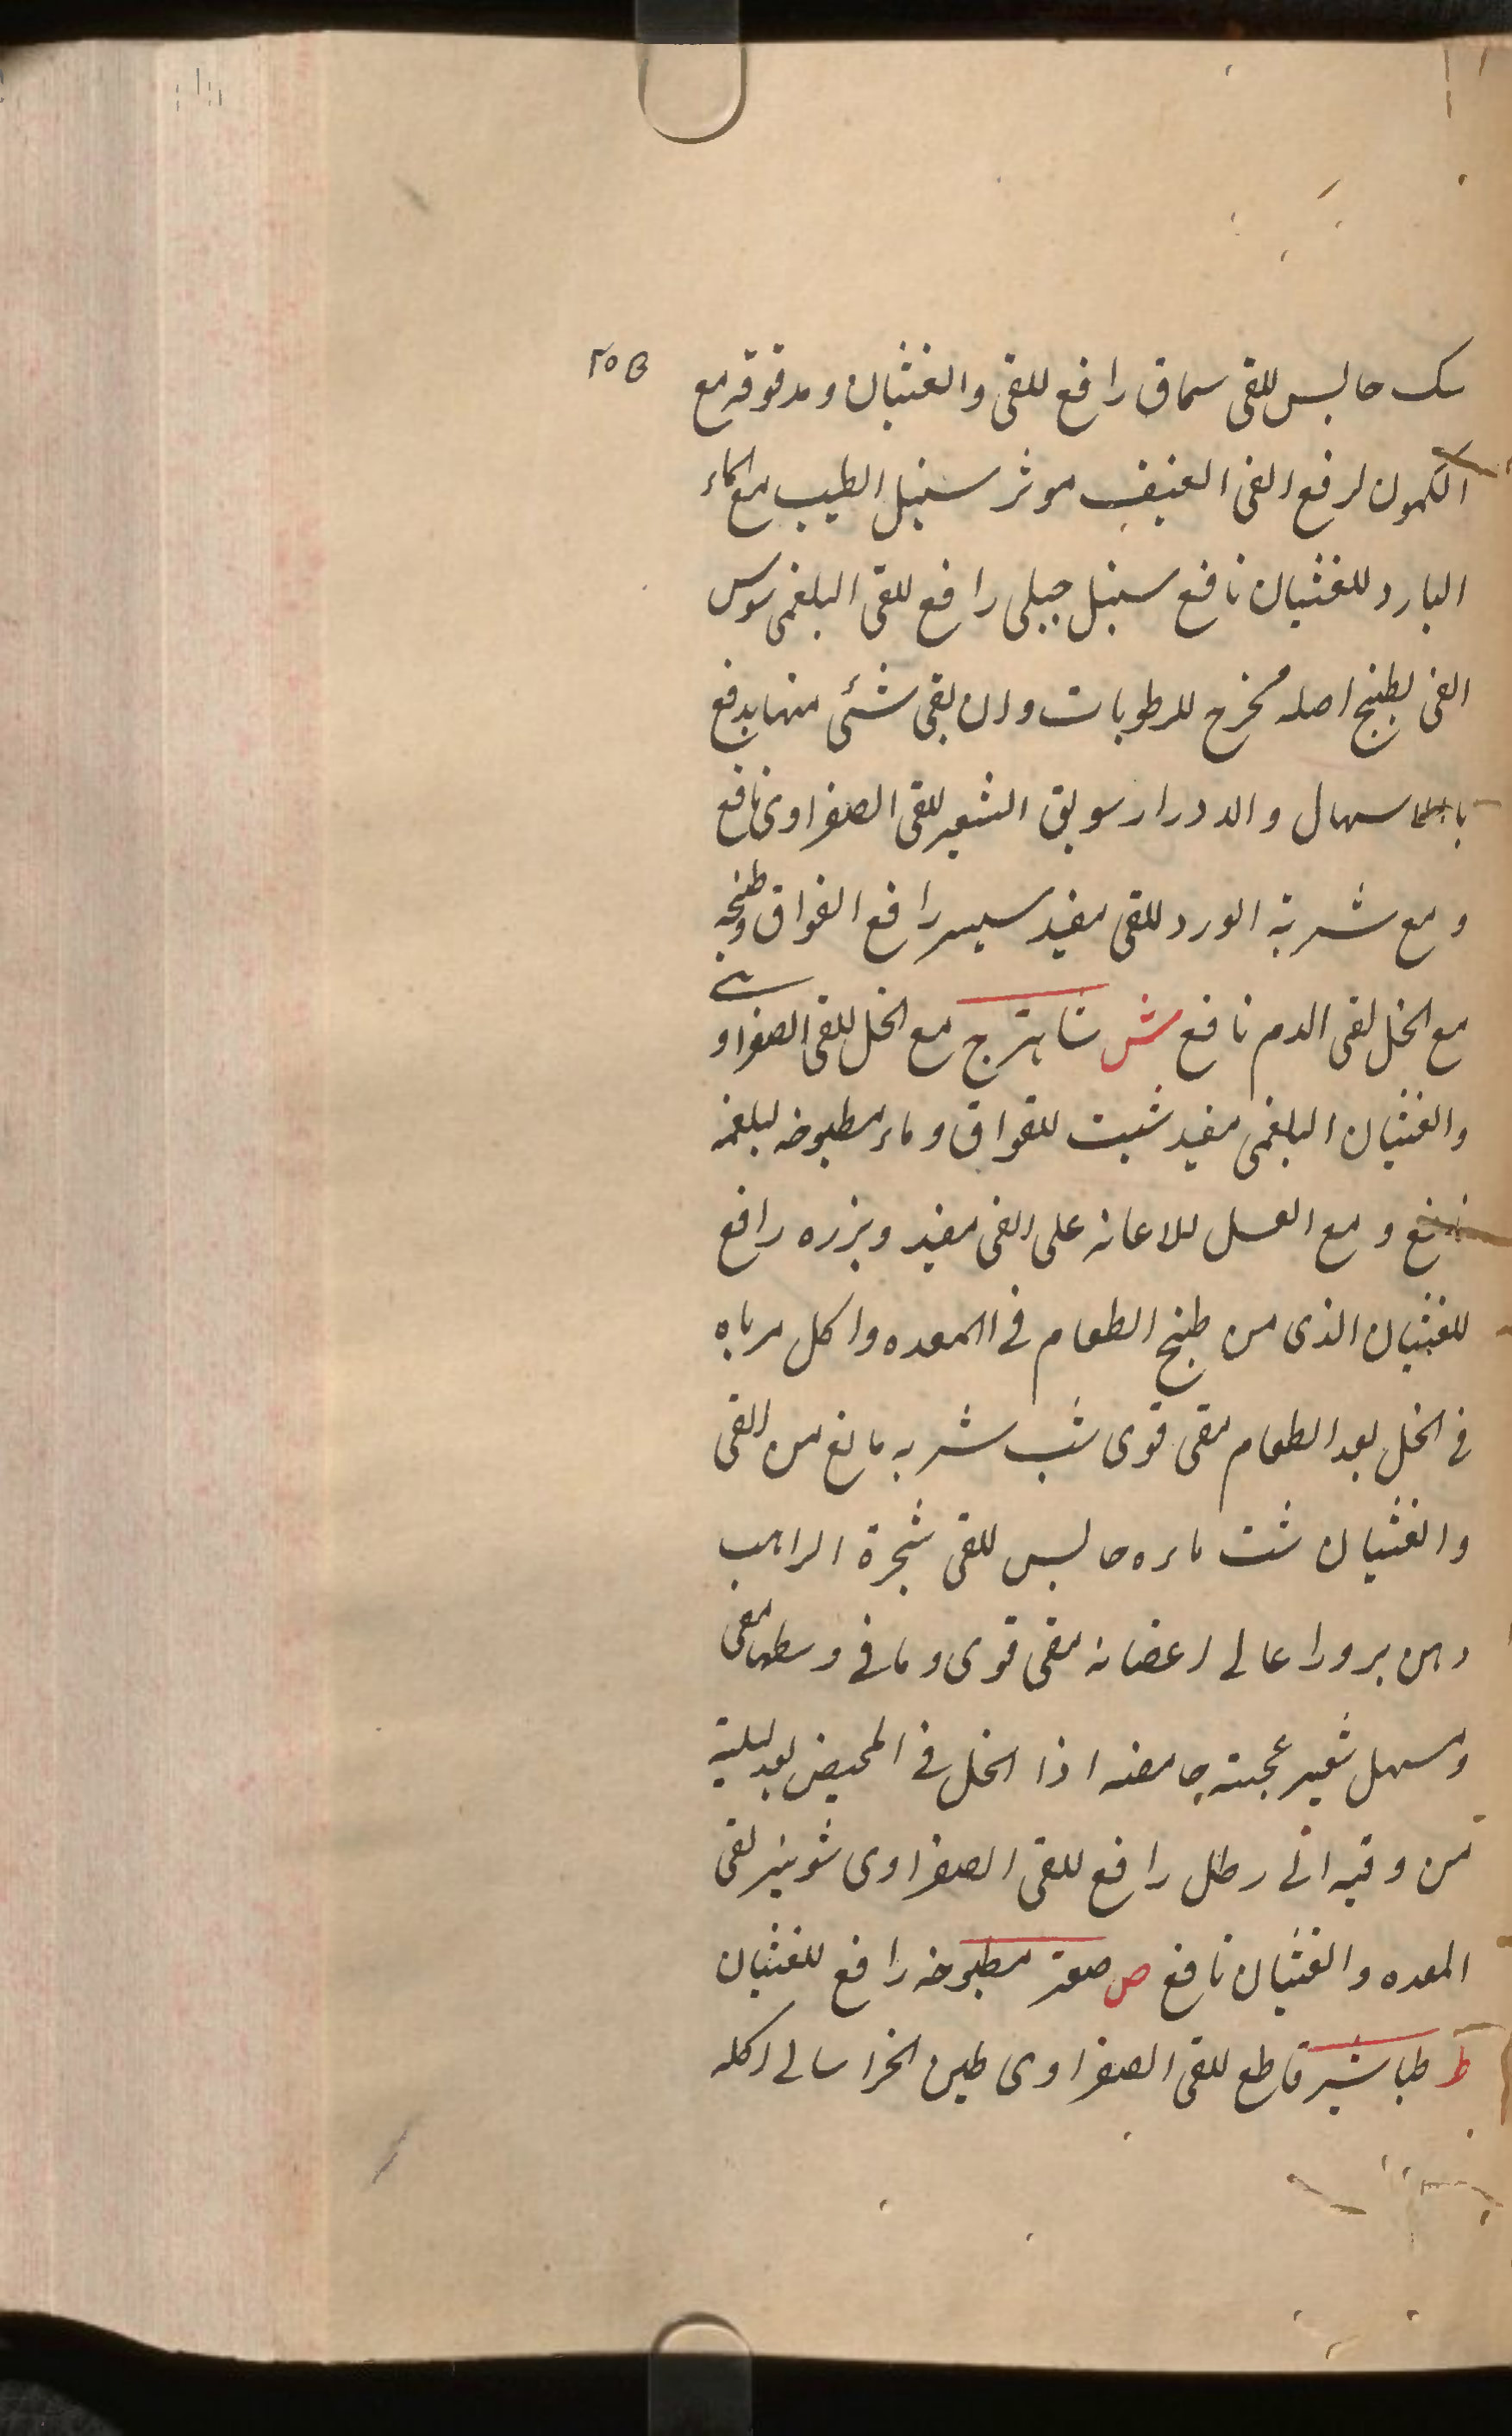 ٢٥B
سک حابس للقی سماق رافع للقی والغثیان ومدقوقه مع
الکمون لرفع القی العنیف موثر سنبل الطیب مع الماء
البارد للغثیان نافع سنبل جبلی رافع للقی البلغمی سوس
القی بطبخ اصله مخرج للرطوبات وان بقی شئی منها یدفع
سهال والادرار سویق الشعیر للقی الصفراوی نافع
و مع شربة الورد للقی مفید رافع الفواق وطبخه
مع الخل لقی الدم نافع ش شاہترج مع الخل للقی الصفراوی
والغثیان البلغمی مفید شبت للفواق وماء مطبوخه لبلغمه
نافع و مع العسل للاعانه علی القی مفید وبزره رافع
للغثیان الذی من طبخ الطعام فی المعده واکل مرباه
فی الخل بعد الطعام مقی قوی شب شربه مانع من القی
والغثیان شت ماءه حابس للقی شجرة الراہب
اعالی اغصانه مقی قوی وما فی وسطها مقی
ومسهل شعیر اذا الخل فی المخیض بعد لیلیة
من وقیه الی رطل رافع للقی الصفراوی شونیز لقی
المعده والغثیان نافع ص صعتر مطبوخه رافع للغثیان
ط طباشیر قاطع للقی الصفراوی طین الخراسانی اکله